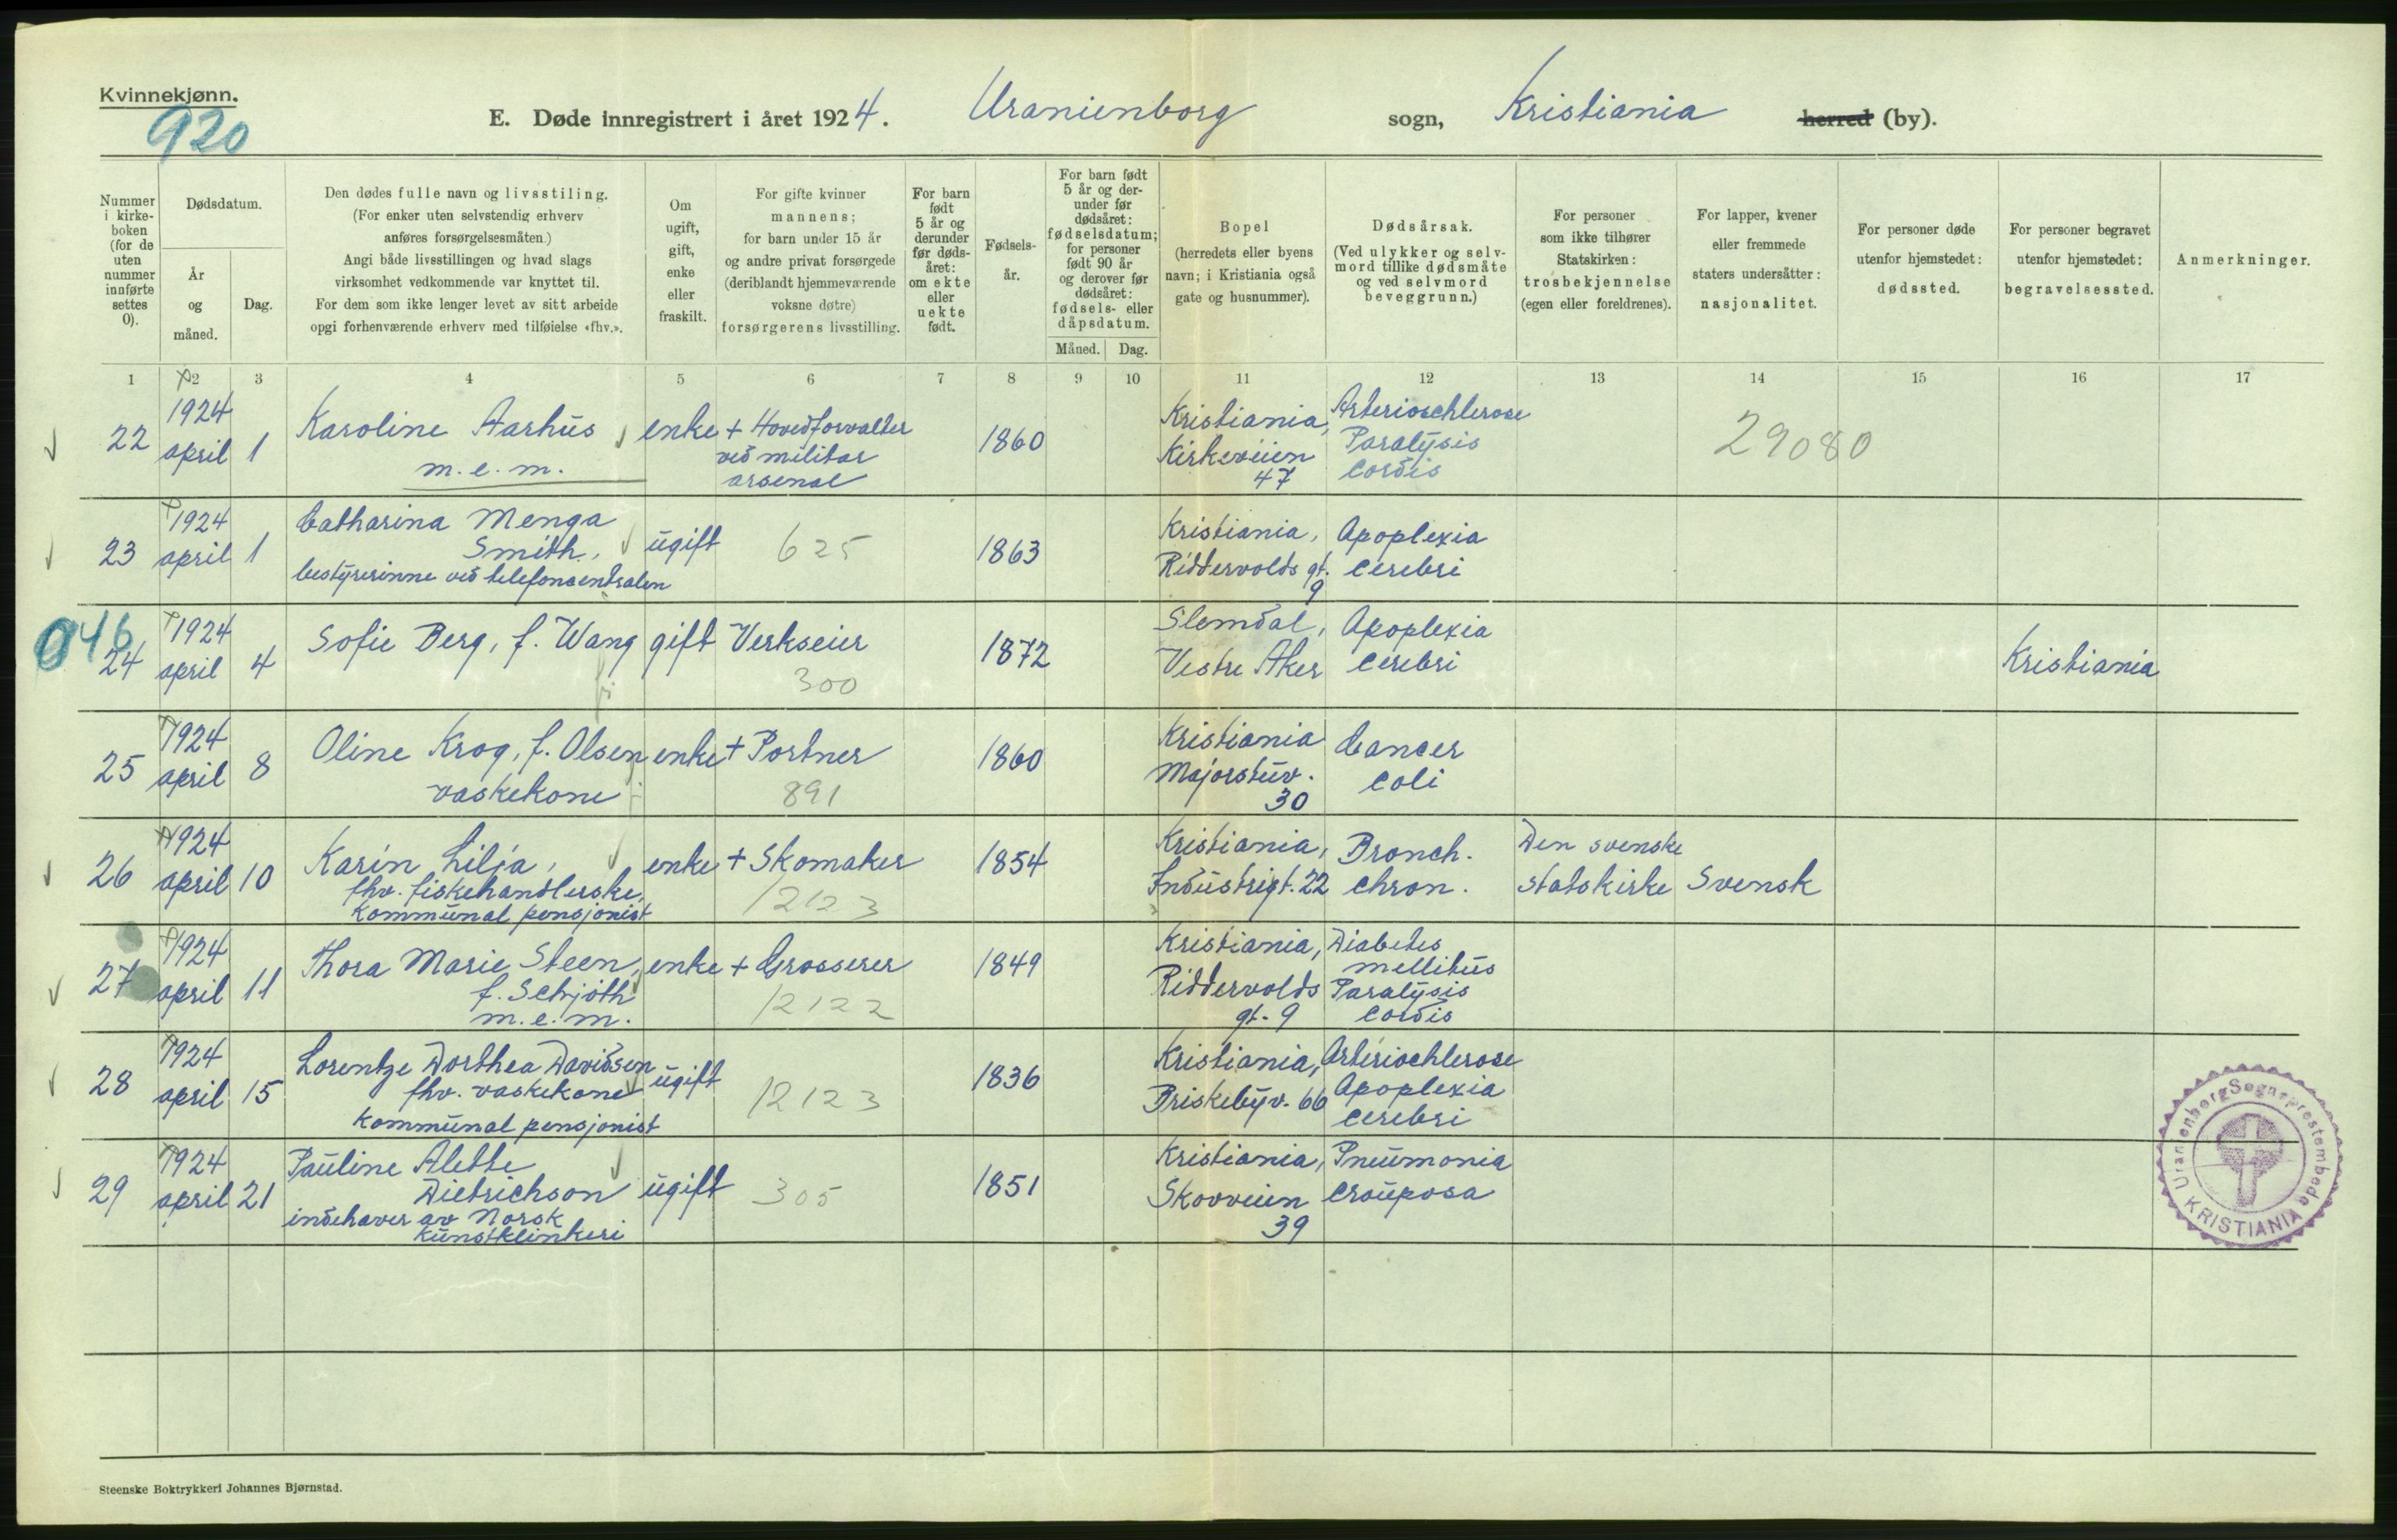 Kvinnekjønn.
920
E. Døde innregistrert i året 1924. Uranienborg sogn, Kristiania herred (by).
Nummer i kirke-boken (for de uten nummer innførte settes 0).
Dødsdatum.
År og måned.
Dag.
Den dødes fulle navn og livsstiling.
(For enker uten selvstendig erhverv
anføres forsørgelsesmåten.)
Angi både livsstillingen og hvad slags
virksomhet vedkommende var knyttet til.
For dem som ikke lenger levet av sitt arbeide
opgi forhenværende erhverv med tilføielse «fhv.».
Om ugift, gift, enke eller fraskilt.
For gifte kvinner
mannens;
for barn under 15 år
og andre privat forsørgede
(deriblandt hjemmeværende
voksne døtre)
forsørgerens livsstilling.
For barn født 5 år og derunder før døds-året: om ekte eller uekte født.
Fødsels-år.
For barn født
5 år og der-
under før
dødsåret:
fødselsdatum;
for personer
født 90 år
og derover før
dødsåret:
fødsels- eller
dåpsdatum.
Måned. Dag.
Bopel
(herredets eller byens
navn; i Kristiania også
gate og husnummer).
Dødsårsak.
(Ved ulykker og selv-
mord tillike dødsmåte
og ved selvmord
beveggrunn.)
For personer
som ikke tilhører
Statskirken:
trosbekjennelse
(egen eller foreldrenes).
For lapper, kvener
eller fremmede
staters undersåtter:
nasjonalitet.
For personer døde
utenfor hjemstedet:
dødssted.
For personer begravet
utenfor hjemstedet:
begravelsessted.
Anmerkninger.
1 2 3 4 5 6 7 8 9 10 11 12 13 14 15 16 17
22 1924 april 1
Karoline Aarhus
m.e.m.
enke
+ Hovedforvalter
ved militær
arsenal
1860
Kristiania,
Kirkeveien
47
Arterioschlerose
Paralysis
cordis
29080
23 1924 april 1
Catharina Menga
Smith,
bestyrerinne ved telefoncentralen
ugift
625
1863
Kristiania,
Riddervolds gt.
9
Apoplexia
cerebri
046
24 1924 april 4
Sofie Berg, f. Wang
gift
Verkseier
300
1872
Slemdal,
Vestre Aker
Apoplexia
cerebri
Kristiania
25 1924 april 8
Oline Krog, f. Olsen
vaskekone
enke
+ Portner
891
1860
Kristiania
Majorstuv.
30
Cancer
coli
26 1924 april 10
Karin Lilja,
fhv. fiskehandlerske,
kommunal pensjonist
enke
+ Skomaker
12123
1854
Kristiania,
Industrigt. 22
Bronch.
chron.
Den svenske
statskirke
Svensk
27 1924 april 11
Thora Marie Steen,
f. Schjøth
m.e.m.
enke
+ Grosserer
12122
1849
Kristiania,
Riddervolds
gt. 9
Diabetes
mellitus
Paralysis
cordis
28 1924 april 15
Lorentze Dorthea Davidsen
fhv. vaskekone
kommunal pensjonist
ugift
12123
1836
Kristiania,
Briskebyv. 66
Arteriochlerose
Apoplexia
cerebri
29 1924 april 21
Pauline Alette
Dietrichson
indehaver av Norsk
kunstklinkeri
ugift
305
1851
Kristiania,
Skovveien
39
Pneumonia
crouposa
Uranienborg Sogneprestembede
KRISTIANIA
Steenske Boktrykkeri Johannes Bjørnstad.